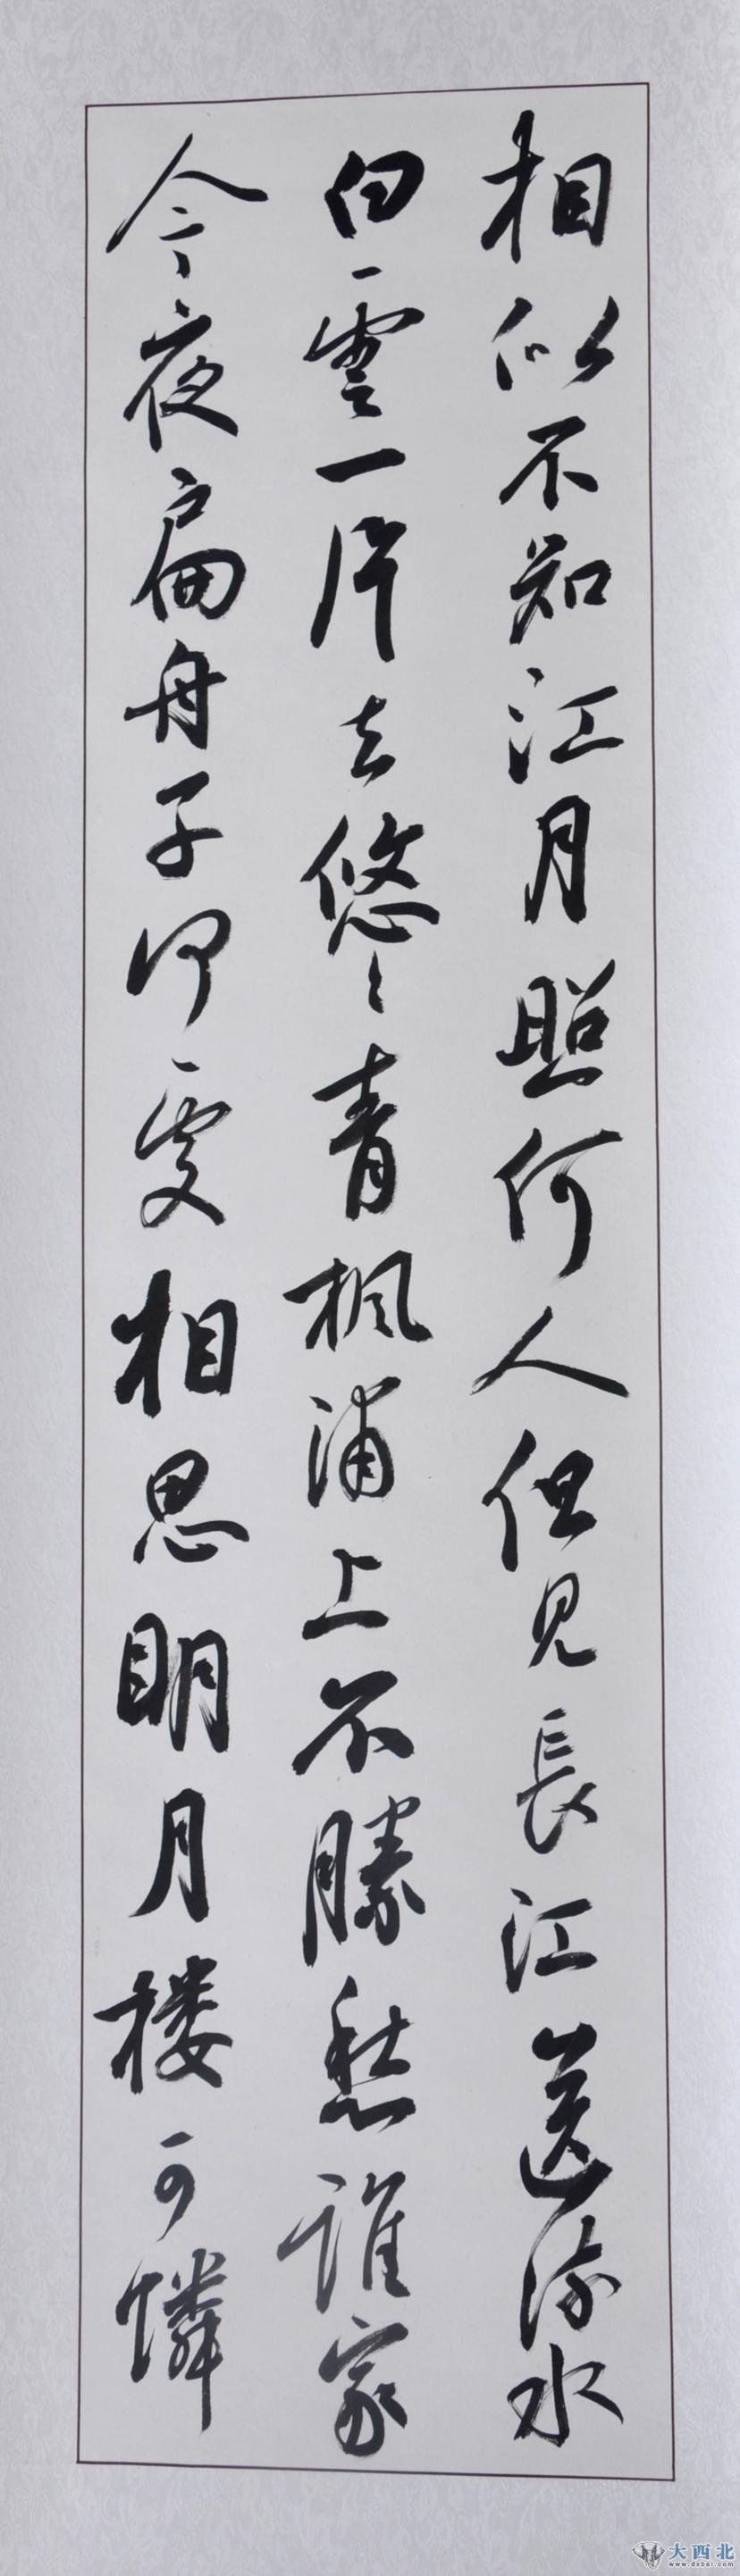 相似不知江月照何人但見長江送流水
白雲一片去悠〻青楓浦上不勝愁誰家
今夜扁舟子何處相思明月楼可憐
大西北
www.dxbei.com